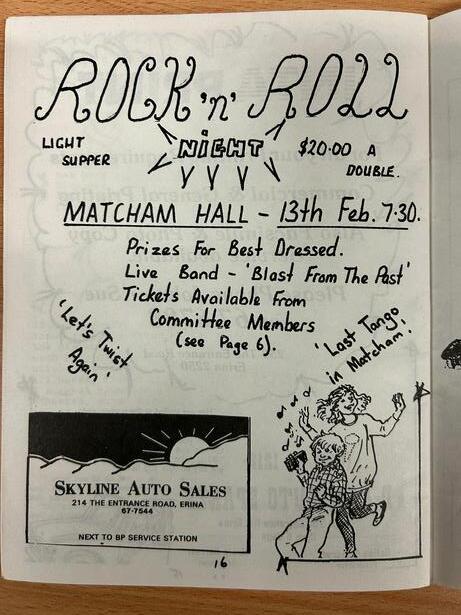 ROCK 'n' ROLL
NiGHT
LIGHT SUPPER
$20.00 A DOUBLE.
MATCHAM HALL - 13th Feb. 7:30.
Prizes For Best Dressed.
Live Band - 'Blast From The Past'
Tickets Available From
Committee Members
(see Page 6).
'Let's Twist
Again'
'Last Tango
in Matcham!'
SKYLINE AUTO SALES
214 THE ENTRANCE ROAD, ERINA
67-7544
NEXT TO BP SERVICE STATION
16